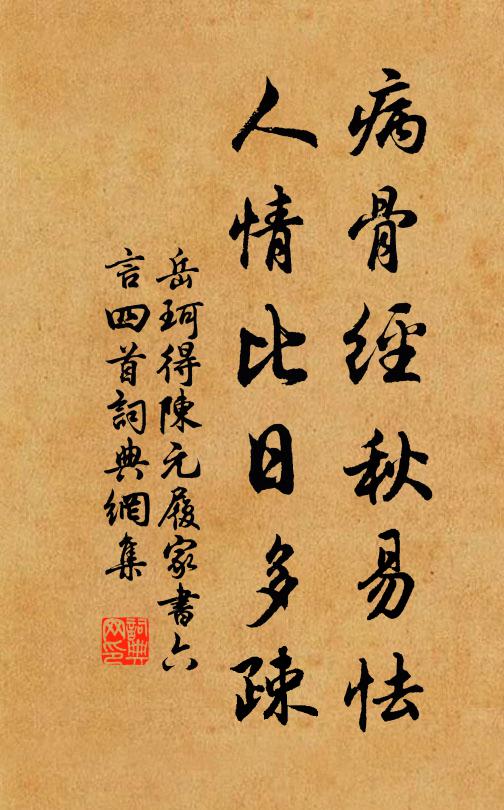 病骨經秋易怯
人情比日多疎
岳珂得陳元履家書六
言四首詞典網集
詞典網印